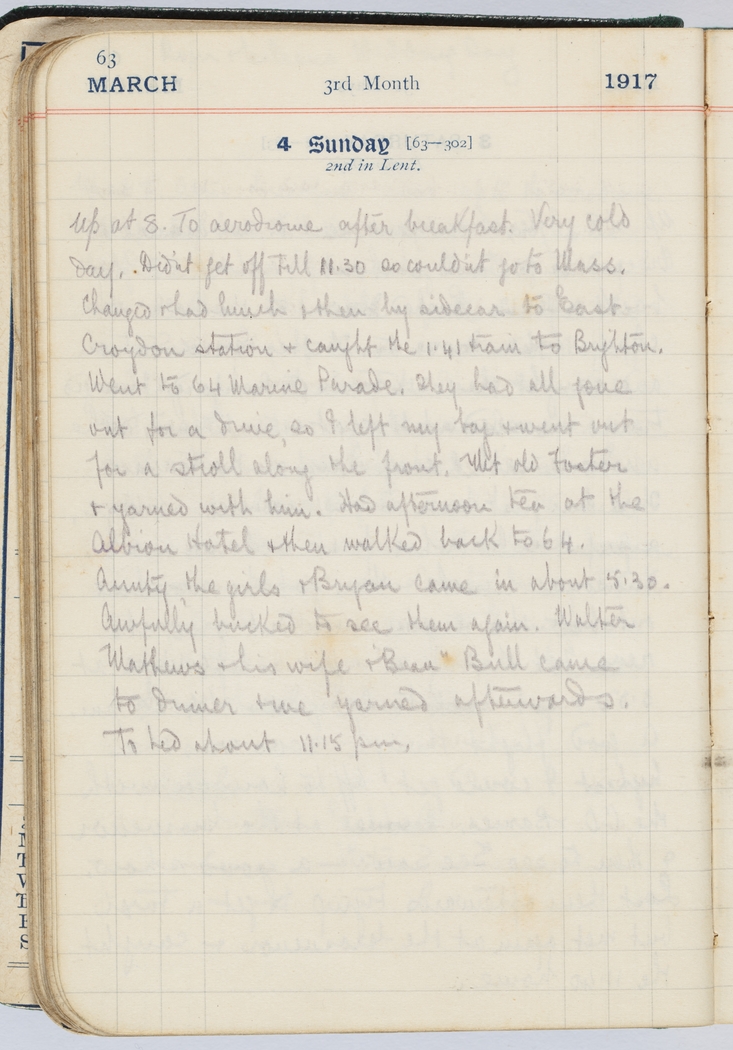 63
MARCH 3rd Month 1917
4 Sunday [63—302]
2nd in Lent.
Up at 8. To aerodrome after breakfast. Very cold
day. Didn't get off till 11.30 so couldn't go to Mass.
Changed & had lunch & then by sidecar to East
Croydon station & caught the 1.41 train to Brighton.
Went to 64 Marine Parade. They had all gone
out for a drive, so I left my bag & went out
for a stroll along the front. Met old Foster
& yarned with him. Had afternoon tea at the
Albion Hotel & then walked back to 64.
Aunty the girls & Bryan came in about 5.30.
Awfully bucked to see them again. Walter
Mathews & his wife & "Beau" Bull came
to dinner & we yarned afterwards.
To bed about 11.15 pm.